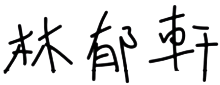 林郁軒